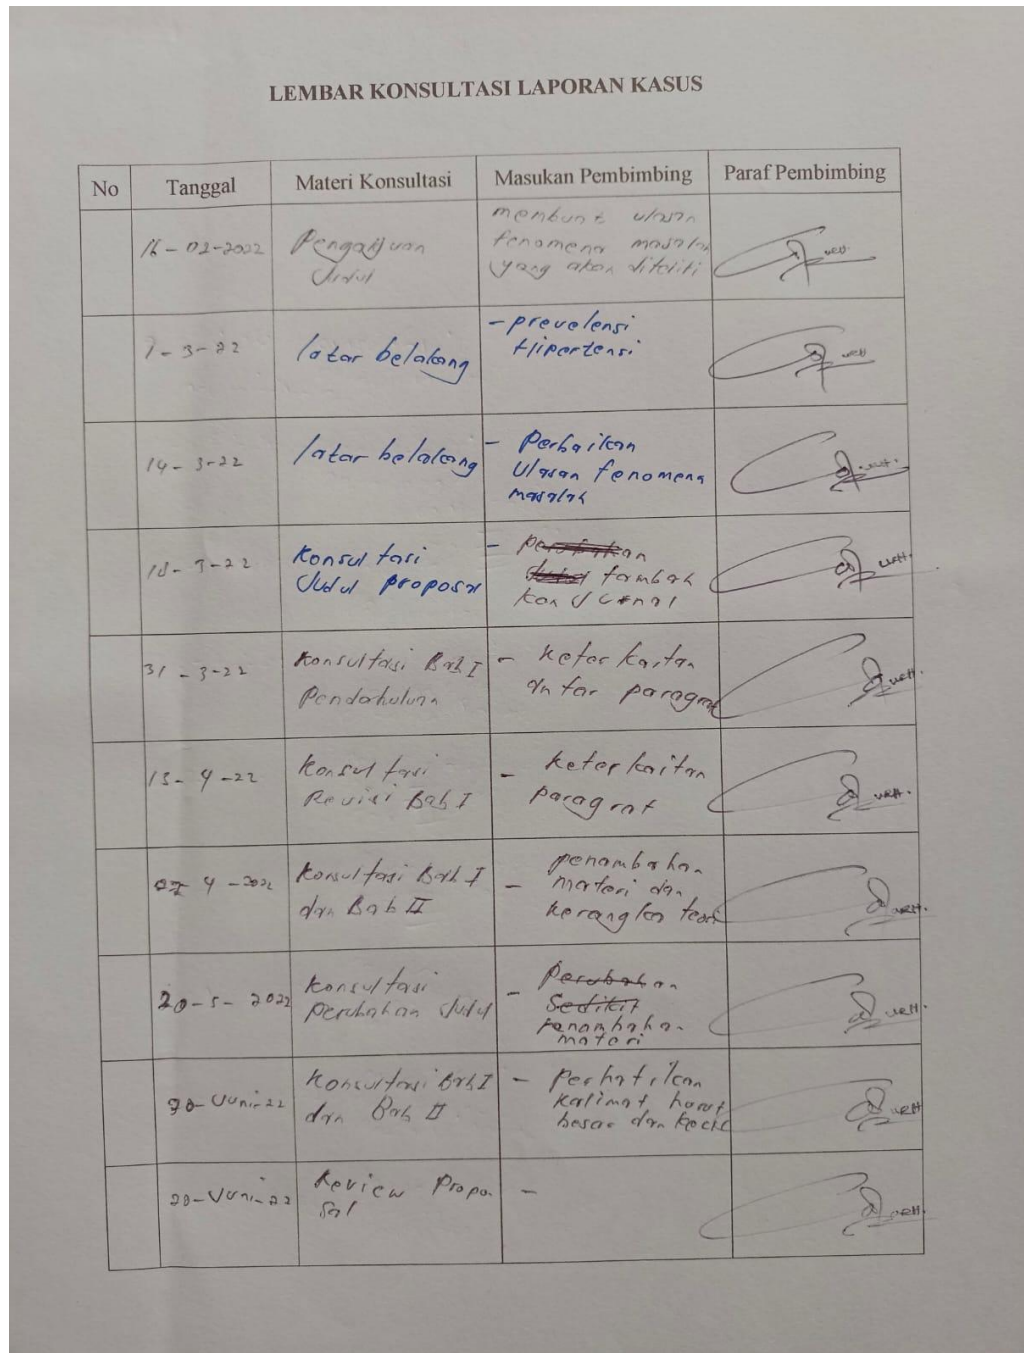 LEMBAR KONSULTASI LAPORAN KASUS
No Tanggal Materi Konsultasi Masukan Pembimbing Paraf Pembimbing
16-02-2022 Pengajuan Judul
membuat ulasan
fenomena masalah
yang akan diteliti
1-3-22 latar belakang
- prevelensi
Hipertensi
14-3-22 latar belakang
- Perbaikan
Ulasan fenomena
masalah
18-3-22 Konsultasi
Judul proposal
- tambah
31-3-22 Konsultasi Bab I
Pendahuluan
- Keterkaitan
antar paragraf
13-4-22 Konsultasi
Revisi Bab I
- Keterkaitan
paragraf
4-2022 Konsultasi Bab I
dan Bab II
penambahan
- materi dan
kerangka teori
20-5-2022 Konsultasi
Perubahan Judul
- Perubahan
Sedikit
Penambahan
materi
Juni-22 Konsultasi Bab I
dan Bab II
- Perhatikan
kalimat huruf
besar dan kecil
Juni-22 Review Propo
sal
-